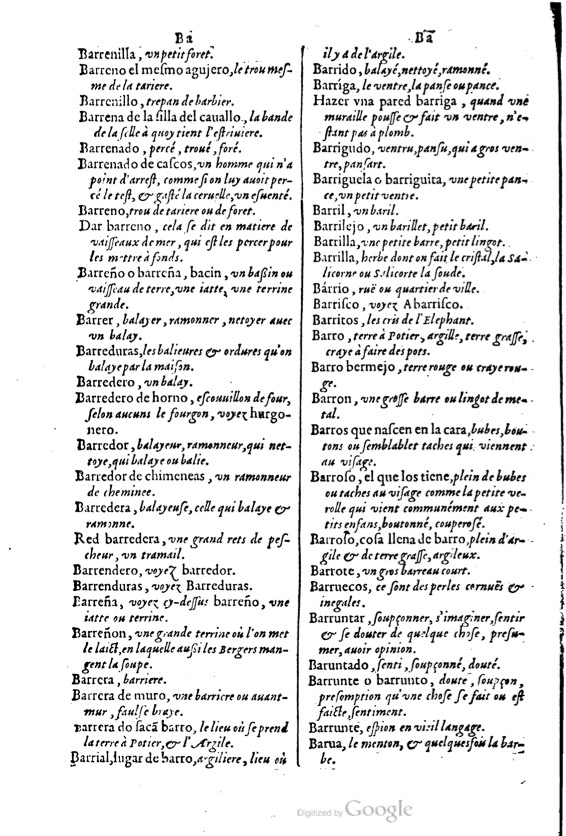 Ba
Barrenilla, vn petit foret.
Barreno el mesmo agujero, le trou mes-
me de la tariere.
Barrenillo, trepan de barbier.
Barrena de la silla del cauallo, la bande
de la selle à quoy tient l'estriuiere.
Barrenado, percé, troué, foré.
Barrenado de cascos, vn homme qui n'a
point d'arrest, comme si on luy auoit per-
cé le test, & gasté la ceruelle, vn esuenté.
Barreno, trou de tariere ou de foret.
Dar barreno, cela se dit en matiere de
vaisseaux de mer, qui est les percer pour
les mettre à fonds.
Barreño o barreña, bacin, vn bassin ou
vaisseau de terre, vne iatte, vne terrine
grande.
Barrer, balayer, ramonner, netoyer auec
vn balay.
Barreduras, les balieures & ordures qu'on
balaye par la maison.
Barredero, vn balay.
Barredero de horno, escouuillon de four,
selon aucuns le fourgon, voyez hurgo-
nero.
Barredor, balayeur, ramonneur, qui net-
toye, qui balaye ou balie.
Barredor de chimeneas, vn ramonneur
de cheminee.
Barredera, balayeuse, celle qui balaye &
ramonne.
Red barredera, vne grand rets de pes-
cheur, vn tramail.
Barrendero, voyez barredor.
Barrenduras, voyez Barreduras.
Barreña, voyez cy-dessus barreño, vne
iatte ou terrine.
Barreñon, vne grande terrine où l'on met
le laict, en laquelle aussi les Bergers man-
gent la soupe.
Barrera, barriere.
Barrera de muro, vne barriere ou auant-
mur, faulse braye.
Barrera do sacã barro, le lieu où se prend
la terre à Potier, & l'Argile.
Barrial, lugar de barro, argiliere, lieu où
Ba
il y a de l'argile.
Barrido, balayé, nettoyé, ramonné.
Barriga, le ventre, la panse ou pance.
Hazer vna pared barriga, quand vne
muraille pousse & fait un ventre, n'e-
stant pas à plomb.
Barrigudo, ventru, pansu, qui a gros ven-
tre, pansart.
Barriguela o barriguita, vne petite pan-
ce, vn petit ventre.
Barril, vn baril.
Barrilejo, vn barillet, petit baril.
Barrilla, vne petite barre, petit lingot.
Barrilla, herbe dont on fait le cristal, la Sa-
licorne ou Salicorte la soude.
Bárrio, ruë ou quartier de ville.
Barrisco, voyez Abarrisco.
Barritos, les cris de l'Elephant.
Barro, terre à Potier, argille, terre grasse,
craye à faire des pots.
Barro bermejo, terre rouge ou craye rou-
ge.
Barron, vne grosse barre ou lingot de me-
tal.
Barros que nascen en la cara, bubes, bou-
tons ou semblablet taches qui viennent
au visage.
Barroso, el que los tiene, plein de bubes
ou taches au visage comme la petite ve-
rolle qui vient communément aux pe-
tits enfans, boutonné, couperosé.
Barroso, cosa llena de barro, plein d'ar-
gile & de terre grasse, argileux.
Barrote, vn gros barreau court.
Barruecos, ce sont des perles cornuës &
inegales.
Barruntar, soupçonner, s'imaginer, sentir
& se douter de quelque chose, presu-
mer, auoir opinion.
Baruntado, senti, soupçonné, douté.
Barrunte o barrunto, doute, soupçon,
presomption qu'vne chose se fait ou est
faicte, sentiment.
Barrunte, espion en vieil langage.
Barua, le menton, & quelquesfois la bar-
be.
Digitized by Google